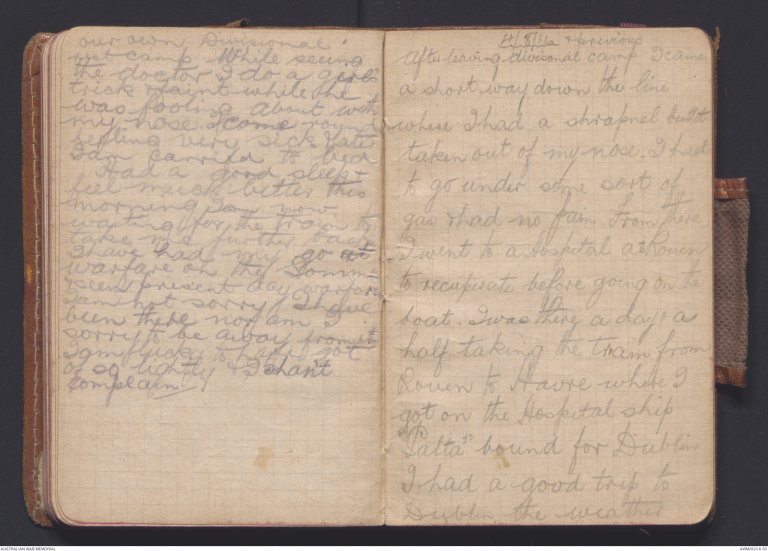 our own Divisional
rest camp. While seeing
the doctor I do a girls
trick & faint while he
was fooling about with
my nose. I come round
feeling very sick later
I am carried to bed
Had a good sleep &
feel much better this
morning I am now
waiting for the train to
take me further back
I have had my go at
warfare on the Somme
& seen present day warfare
I am not sorry I have
been there nor am I
sorry to be away from it
I am lucky to have got
of so lightly & I shan't
complain.
4/8/16 & previous
After leaving divisional camp I came
a short way down the line
where I had a shrapnel bullet
taken out of my nose. I had
to go under some sort of
gas & had no pain. From there
I went to a hospital at Rouen
to recuperate before going on the
boat. I was there a day & a
half taking the train from
Rouen to Havre where I
got on the Hospital ship
"Salta" bound for Dublin
I had a good trip to
Dublin the weather
AUSTRALIAN WAR MEMORIAL